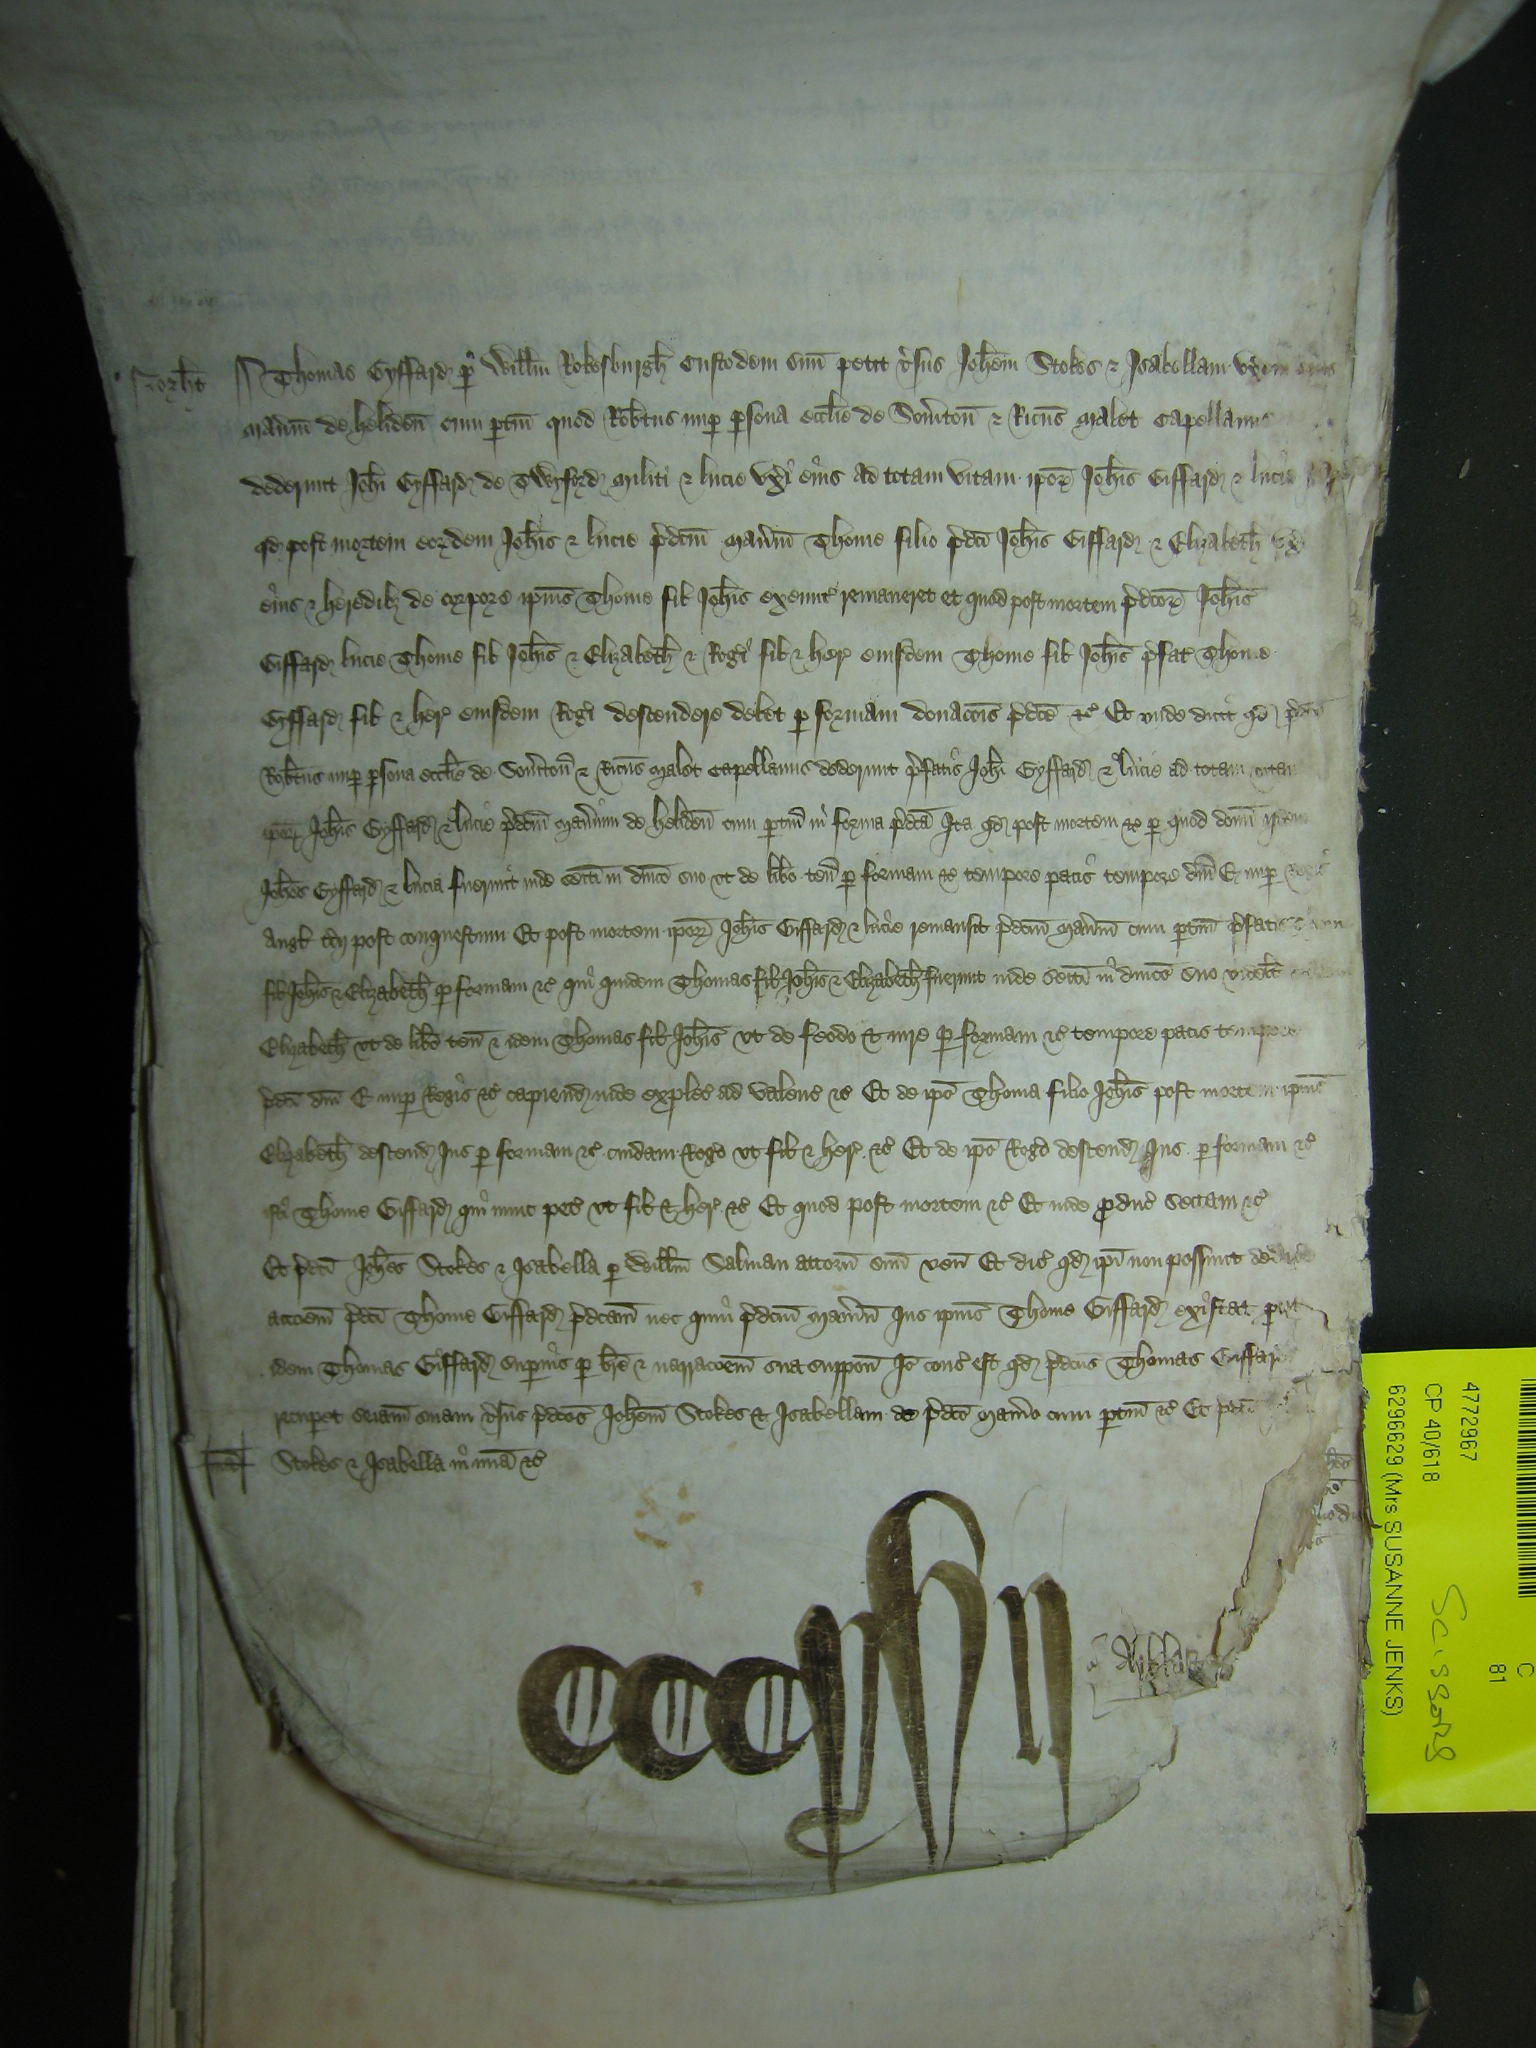 Norht
Thomas Gyffard p Willm Rokesburgh Custodem suu petit vsus Johem Stokes & Isabellam vxem eius
manm de heliden cum ptin quod Robtus nup psona ecclie de Somton & Ricus Malet Capellanus
dederunt Johi Gyffard de Twyford militi & lucie vxi eius ad totam vitam ipor Johis Giffard & lucie
qd post mortem eordem Johis & lucie pdcm manm Thome filio pdci Johis Giffard & Elizabeth vxi
eius & heredib de corpore ipius Thome fil Johis exeunt remaneret et quod post mortem pdcor Johis
Giffard lucie Thome fil Johis & Elizabeth & Rogi fil & her eiusdem Thome fil Johis pfat Thome
Gyffard fil & her eiusdem Rogi descendere debet p formam donacois pdce &c Et vnde dicit qd pdcus
Robtus nup psona ecclie de Somton & Ricus Malet Capellanus dederunt pfatis Johi Gyffard & lucie ad totam vitam
ipor Johis Gyffard & lucie pdcm manium de heliden cum ptin in forma pdca Ita qd post mortem &c p quod donu iidem
Johes Gyffard & lucia fuerunt inde seiti in dnico suo vt de libo ten p formam &c tempore pacis tempore dni E nup regis
Angl tcij post conquestum Et post mortem ipor Johis Giffard & lucie remansit pdcum manm cum ptin pfatis Thome
fil Johis & Elizabeth p formam &c qui quidem Thomas fil Johis & Elizabeth fuerunt inde seiti in dnico suo videlt eadem
Elizabeth vt de libo ten & idem Thomas fil Johis vt de feodo & iure p formam &c tempore pacis tempore
pdci dni E nup Regis &c capiend inde exples ad valenc &c Et de ipo Thoma filio Johis post mortem ipius
Elizabeth descend Ius p formam &c cuidam Rogo vt fil & her &c Et de ipo Rogo descend Ius p formam &c
isti Thome Giffard qui nunc pet vt fil & her &c Et quod post mortem &c Et inde produc sectam &c
Et pdci Johes Stokes & Isabella p Willm Salman attorn suu ven Et dic qd ipi non possunt dedicere
accoem pdci Thome Giffard pdcam nec quin pdcum manm Ius ipius Thome Giffard existat put
idem Thomas Giffard supius p bre & narracoem sua suppon Io cons est qd pdcus Thomas Giffard
recupet seiam suam vsus pdcos Johem Stokes & Isabellam de pdco manio cum ptin &c Et pdci
Stokes & Isabella in mia &c
mia
ccc iiij
4772967
CP 40/618
6296629 (Mrs SUSANNE JENKS)
Scissors
C
81